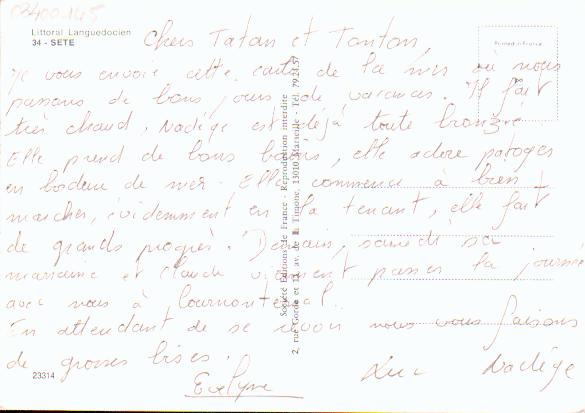 03400.145
Littoral Languedocien
34 - SETE
Printed in France
Chers Tatan et Tonton,
Je vous envoie cette carte de la mer où nous
passons de bons jours de vacances. Il fait
très chaud, Nadège est déjà toute bronzée
Elle prend de bons bains, elle adore patoger
en bordure de mer. Elle commence à bien
marcher, évidemment en la tenant, elle fait
de grands progrès. Demain, samedi sa
marraine et Claude viennent passer la journée
avec nous à
En attendant de se revoir nous vous faisons
de grosses bises.
Evelyne Luc Nadège
23314
Société Editions de France - Reproduction interdite
2, rue Gorde et 13, av. de la Timone, 13010 Marseille - Tél. 79.24.57